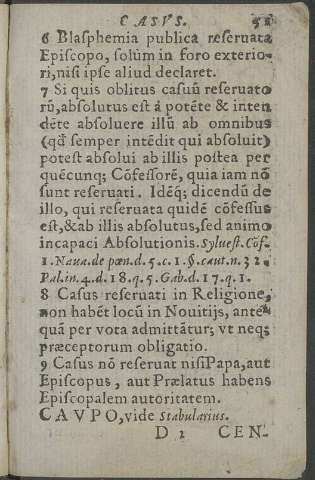 CASVS.
6 Blasphemia publica reseruata
Episcopo, solùm in foro exterio-
ri, nisi ipse aliud declaret.
7 Si quis oblitus casuũ reseruato
rũ, absolutus est á potẽte & inten
dẽte absoluere illũ ab omnibus
(qđ semper intẽdit qui absoluit)
potest absolui ab illis postea per
quẽcunq; Cõfessorẽ, quia iam nõ
sunt reseruati. Idẽq; dicendũ de
illo, qui reseruata quidẽ cõfessus
est, & ab illis absolutus, sed animo
incapaci Absolutionis. Syluest. Cõf.
1. Naua. de pœn. d. 5. c. 1. §. caut. n. 32.
Pal. in. 4. d. 18. q. 5. Gab. d. 17. q. 1.
8 Casus reseruati in Religione,
non habẽt locũ in Nouitijs, ante
quã per vota admittãtur; vt neq;
præceptorum obligatio.
9 Casus nõ reseruat nisi Papa, aut
Episcopus, aut Prælatus habens
Episcopalem autoritatem.
CAVPO, vide Stabularius.
D 2 CEN-